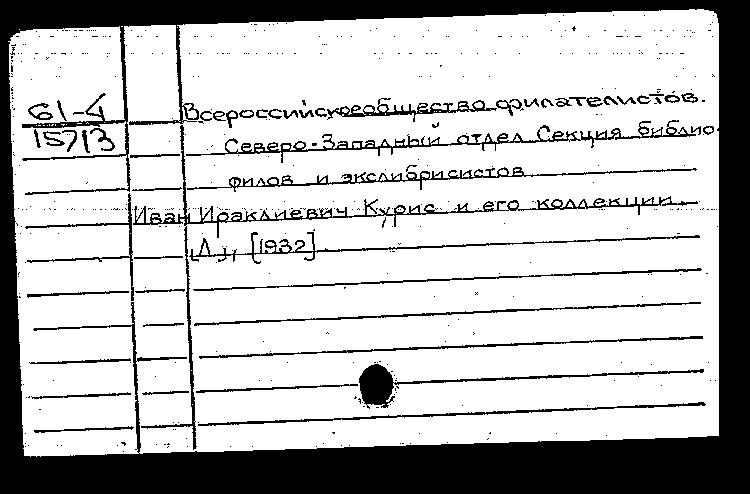 61-4
15713
Всероссийское общество филателистов.
Северо-Западный отдел Секция библио-
филов и экслибрисистов
Иван Ираклиевич Курис и его коллекции.
[Л.], [1932].